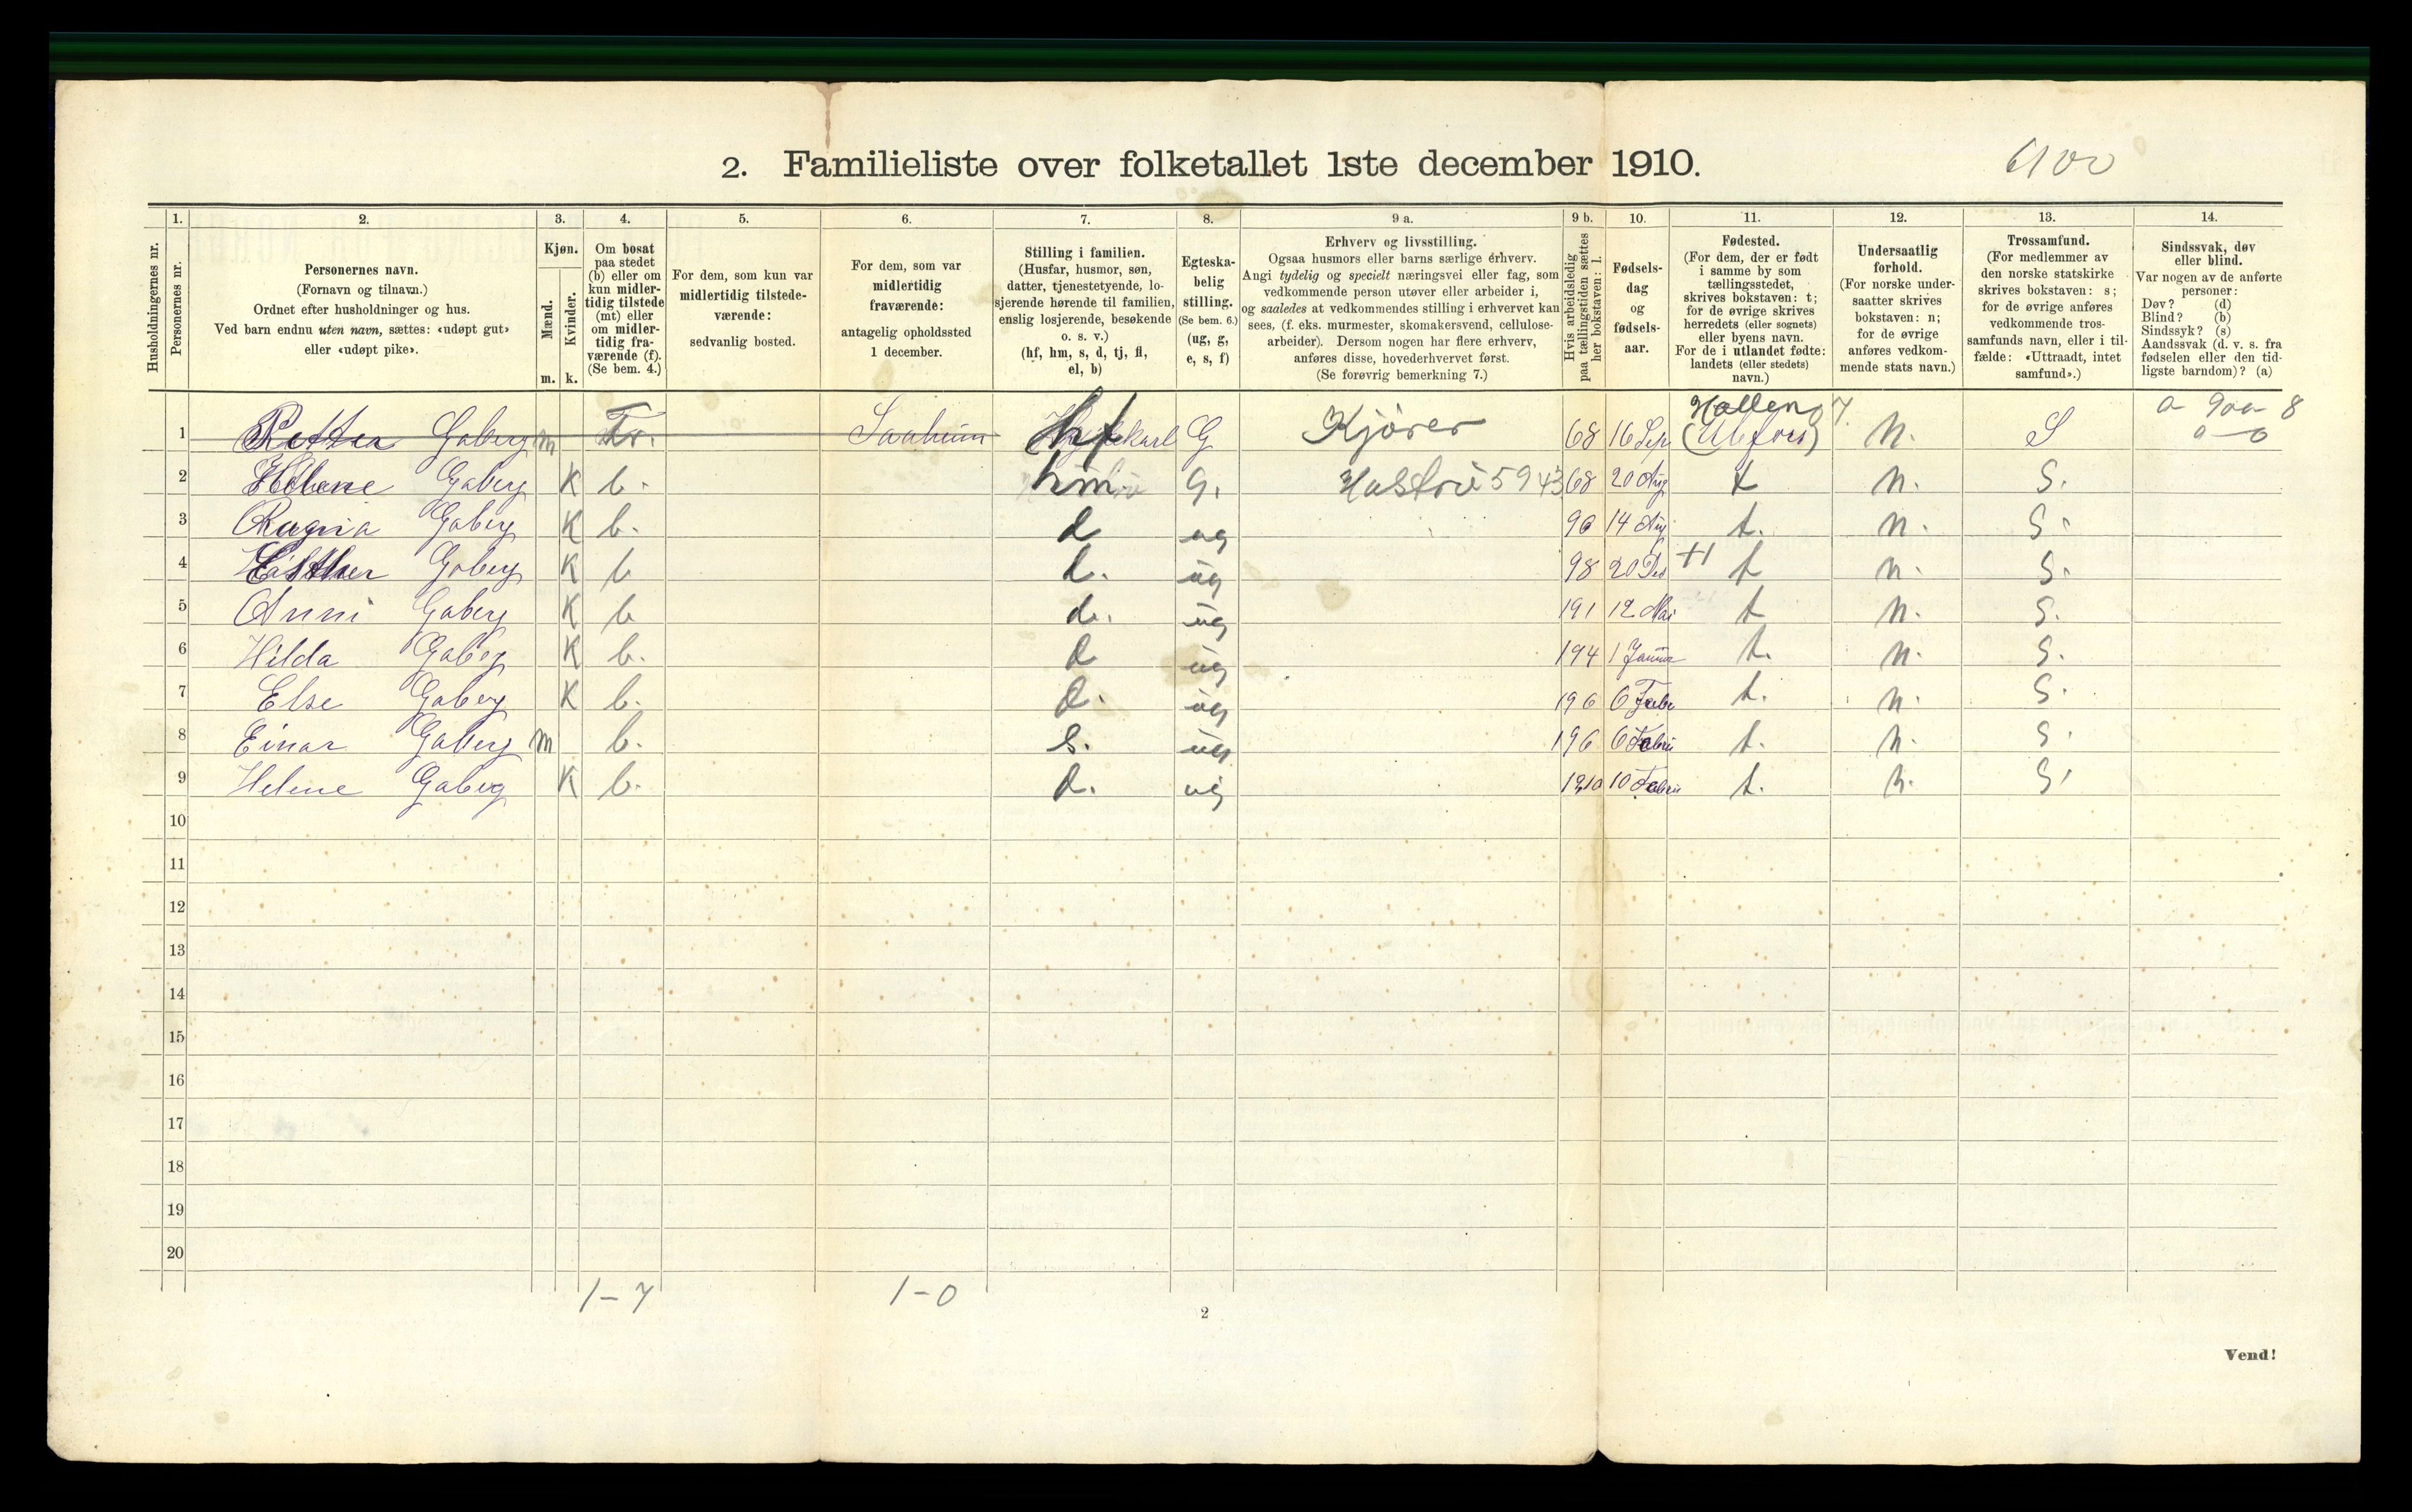 2. Familieliste over folketallet 1ste december 1910.
6100
1. 2. 3. 4. 5. 6. 7. 8. 9 a. 9 b. 10. 11. 12. 13. 14.
Husholdningernes nr.
Personernes nr.
Personernes navn.
(Fornavn og tilnavn.)
Ordnet efter husholdninger og hus.
Ved barn endnu uten navn, sættes: «udøpt gut»
eller «udøpt pike».
Kjøn.
Mænd.
Kvinder.
m. k.
Om bosat
paa stedet
(b) eller om
kun midler-
tidig tilstede
(mt) eller
om midler-
tidig fra-
værende (f).
(Se bem. 4.)
For dem, som kun var
midlertidig tilstede-
værende:
sedvanlig bosted.
For dem, som var
midlertidig
fraværende:
antagelig opholdssted
1 december.
Stilling i familien.
(Husfar, husmor, søn,
datter, tjenestetyende, lo-
sjerende hørende til familien,
enslig losjerende, besøkende
o. s. v.)
(hf, hm, s, d, tj, fl,
el, b)
Egteska-
belig
stilling.
(Se bem. 6.)
(ug, g,
e, s, f)
Erhverv og livsstilling.
Ogsaa husmors eller barns særlige erhverv.
Angi tydelig og specielt næringsvei eller fag, som
vedkommende person utøver eller arbeider i,
og saaledes at vedkommendes stilling i erhvervet kan
sees, (f. eks. murmester, skomakersvend, cellulose-
arbeider). Dersom nogen har flere erhverv,
anføres disse, hovederhvervet først.
(Se forøvrig bemerkning 7.)
Hvis arbeidsledig
paa tællingstiden sættes
her bokstaven: l.
Fødsels-
dag
og
fødsels-
aar.
Fødested.
(For dem, der er født
i samme by som
tællingsstedet,
skrives bokstaven: t;
for de øvrige skrives
herredets (eller sognets)
eller byens navn.
For de i utlandet fødte:
landets (eller stedets)
navn.)
Undersaatlig
forhold.
(For norske under-
saatter skrives
bokstaven: n;
for de øvrige
anføres vedkom-
mende stats navn.)
Trossamfund.
(For medlemmer av
den norske statskirke
skrives bokstaven: s;
for de øvrige anføres
vedkommende tros-
samfunds navn, eller i til-
fælde: «Uttraadt, intet
samfund».)
Sindssvak, døv
eller blind.
Var nogen av de anførte
personer:
Døv? (d)
Blind? (b)
Sindssyk? (s)
Aandssvak (d. v. s. fra
fødselen eller den tid-
ligste barndom)? (a)
1 Gaberg m Fr. Saaheim hf G Kjører 68 16 Sep Hollen (Ulefoss) n. S
2 Helene Gaberg K b. hm G. Hustru 5943 68 20 Aug t n. S.
3 Ragna Gaberg K b. d ug 90 14 Aug t. n. S.
4 Esther Gaberg K b d. ug 98 20 t n. S.
5 Anni Gaberg K b d. ug 191 12 Mai t n. S.
6 Hilda Gaberg K b. d ug 194 1 Januar t. n. S.
7 Else Gaberg K b. d. ug 196 6 Febr t. n. S.
8 Einar Gaberg m b. s. ug 196 6 Febru t. n. S.
9 Helene Gaberg K b. d. ug 1910 10 Febru t. n. S.
10
11
12
13
14
15
16
17
18
19
20
1-7 1-0
2
Vend!